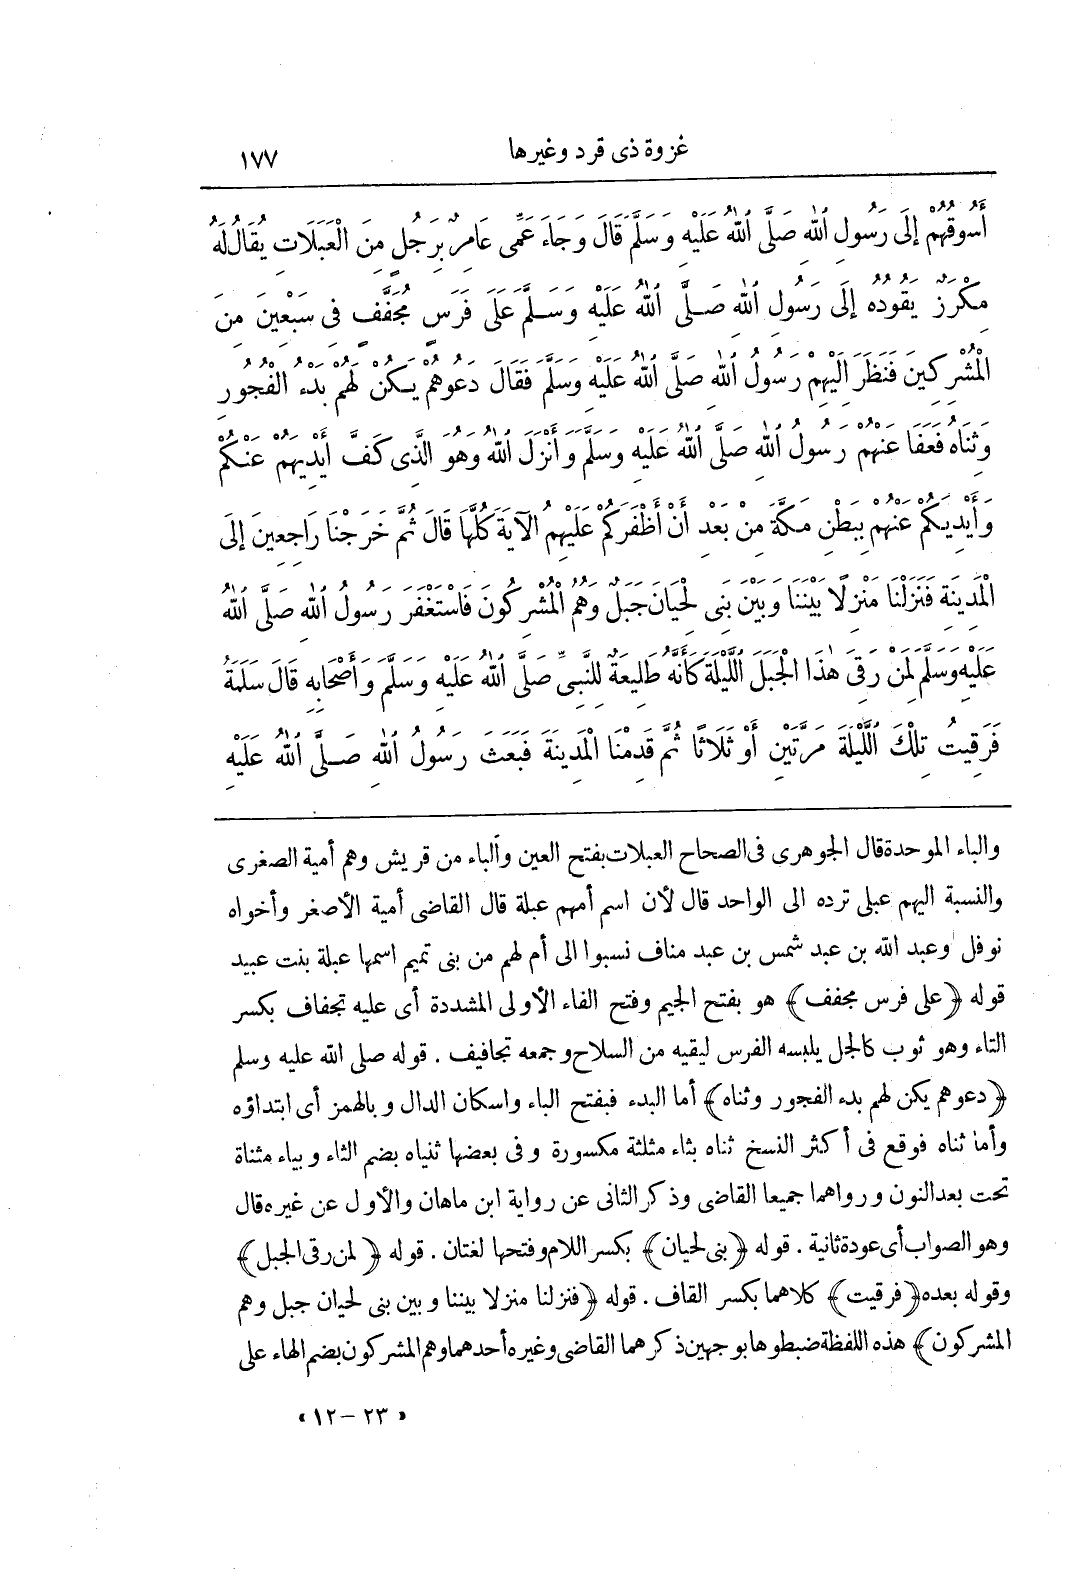 غزوة ذى قرد وغيرها ١٧٧
أَسُوقُهُمْ إِلَى رَسُولِ ٱللهِ صَلَّى ٱللهُ عَلَيْهِ وَسَلَّمَ قَالَ وَجَاءَ عَمِّى عَامِرٌ بِرَجُلٍ مِنَ الْعَبَلَاتِ يُقَالُ لَهُ
مِكْرَزٌ يَقُودُهُ إِلَى رَسُولِ ٱللهِ صَلَّى ٱللهُ عَلَيْهِ وَسَلَّمَ عَلَى فَرَسٍ مُجَفَّفٍ فِى سَبْعِينَ مِنَ
الْمُشْرِكِينَ فَنَظَرَ الَيْهِمْ رَسُولُ ٱللهِ صَلَّى ٱللهُ عَلَيْهِ وَسَلَّمَ فَقَالَ دَعُوهُمْ يَكُنْ لَهُمْ بَدْءُ الْفُجُورِ
وَثِنَاهُ فَعَفَا عَنْهُمْ رَسُولُ ٱللهِ صَلَّى ٱللهُ عَلَيْهِ وَسَلَّمَ وَأَنْزَلَ ٱللهُ وَهُوَ الَّذِى كَفَّ أَيْدِيَهُمْ عَنْكُمْ
وَأَيْدِيَكُمْ عَنْهُمْ بِبَطْنِ مَكَّةَ مِنْ بَعْدِ أَنْ أَظْفَرَكُمْ عَلَيْهِمُ الآيَةَ كُلَّهَا قَالَ ثُمَّ خَرَجْنَا رَاجِعِينَ إِلَى
الْمَدِينَةِ فَنَزَلْنَا مَنْزِلًا بَيْنَنَا وَبَيْنَ بَنِى لِحْيَانَ جَبَلٌ وَهُمُ الْمُشْرِكُونَ فَاسْتَغْفَرَ رَسُولُ ٱللهِ صَلَّى ٱللهُ
عَلَيْهِ وَسَلَّمَ لِمَنْ رَقِىَ هٰذَا الْجَبَلَ ٱللَّيْلَةَ كَأَنَّهُ طَلِيعَةٌ لِلنَّبِىِّ صَلَّى ٱللهُ عَلَيْهِ وَسَلَّمَ وَأَصْحَابِهِ قَالَ سَلَمَةُ
فَرَقِيتُ تِلْكَ ٱللَّيْلَةَ مَرَّتَيْنِ أَوْ ثَلَاثًا ثُمَّ قَدِمْنَا الْمَدِينَةَ فَبَعَثَ رَسُولُ ٱللهِ صَلَّى ٱللهُ عَلَيْهِ
والباء الموحدة قال الجوهرى فى الصحاح العبلات بفتح العين والباء من قريش وهم أمية الصغرى
والنسبة اليهم عبلى ترده الى الواحد قال لأن اسم أمهم عبلة قال القاضى أمية الأصغر وأخواه
نوفل وعبد الله بن عبد شمس بن عبد مناف نسبوا الى أم لهم من بنى تميم اسمها عبلة بنت عبيد
قوله ﴿على فرس مجفف﴾ هو بفتح الجيم وفتح الفاء الأولى المشددة أى عليه تجفاف بكسر
التاء وهو ثوب كالجل يلبسه الفرس ليقيه من السلاح وجمعه تجافيف . قوله صلى الله عليه وسلم
﴿دعوهم يكن لهم بدء الفجور وثناه﴾ أما البدء فبفتح الباء واسكان الدال وبالهمز أى ابتداؤه
وأما ثناه فوقع فى أكثر النسخ ثناه بثاء مثلثة مكسورة وفى بعضها ثنياه بضم الثاء وبياء مثناة
تحت بعد النون ورواهما جميعا القاضى وذكر الثانى عن رواية ابن ماهان والأول عن غيره قال
وهو الصواب أى عودة ثانية . قوله ﴿بنى لحيان﴾ بكسر اللام وفتحها لغتان . قوله ﴿لمن رقى الجبل﴾
وقوله بعده ﴿فرقيت﴾ كلاهما بكسر القاف . قوله ﴿فنزلنا منزلا بيننا وبين بنى لحيان جبل وهم
المشركون﴾ هذه اللفظة ضبطوها بوجهين ذكرهما القاضى وغيره أحدهما وهم المشركون بضم الهاء على
« ٢٣ – ١٢ »